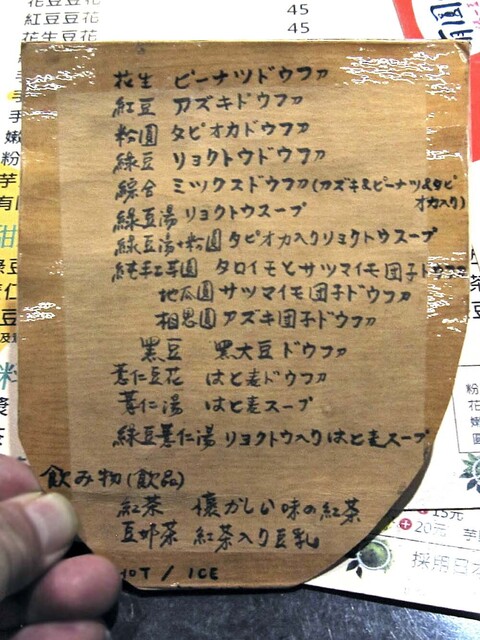 花豆花
紅豆豆花 45
花生豆花 45
花生 ピーナツドウファ
紅豆 アズキドウファ
粉圓 タピオカドウファ
綠豆 リョクトウドウファ
綜合 ミックスドウファ(アズキ&ピーナツ&タピオカ入り)
綠豆湯 リョクトウスープ
綠豆湯+粉圓 タピオカ入りリョクトウスープ
純手工芋圓 タロイモとサツマイモ団子ドウファ
地瓜圓 サツマイモ団子ドウファ
相思圓 アズキ団子ドウファ
黑豆 黒大豆ドウファ
薏仁豆花 はと麦ドウファ
薏仁湯 はと麦スープ
綠豆薏仁湯 リョクトウ入りはと麦スープ
飲み物(飲品)
紅茶 懐かしい味の紅茶
豆奶茶 紅茶入り豆乳
HOT / ICE
15元
20元 芋
採用日本